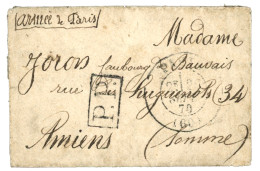 Armée de Paris
Madame
Joron faubourg Beauvais
rue Huguenots (34
P.P.
70
(60)
Amiens (Somme)